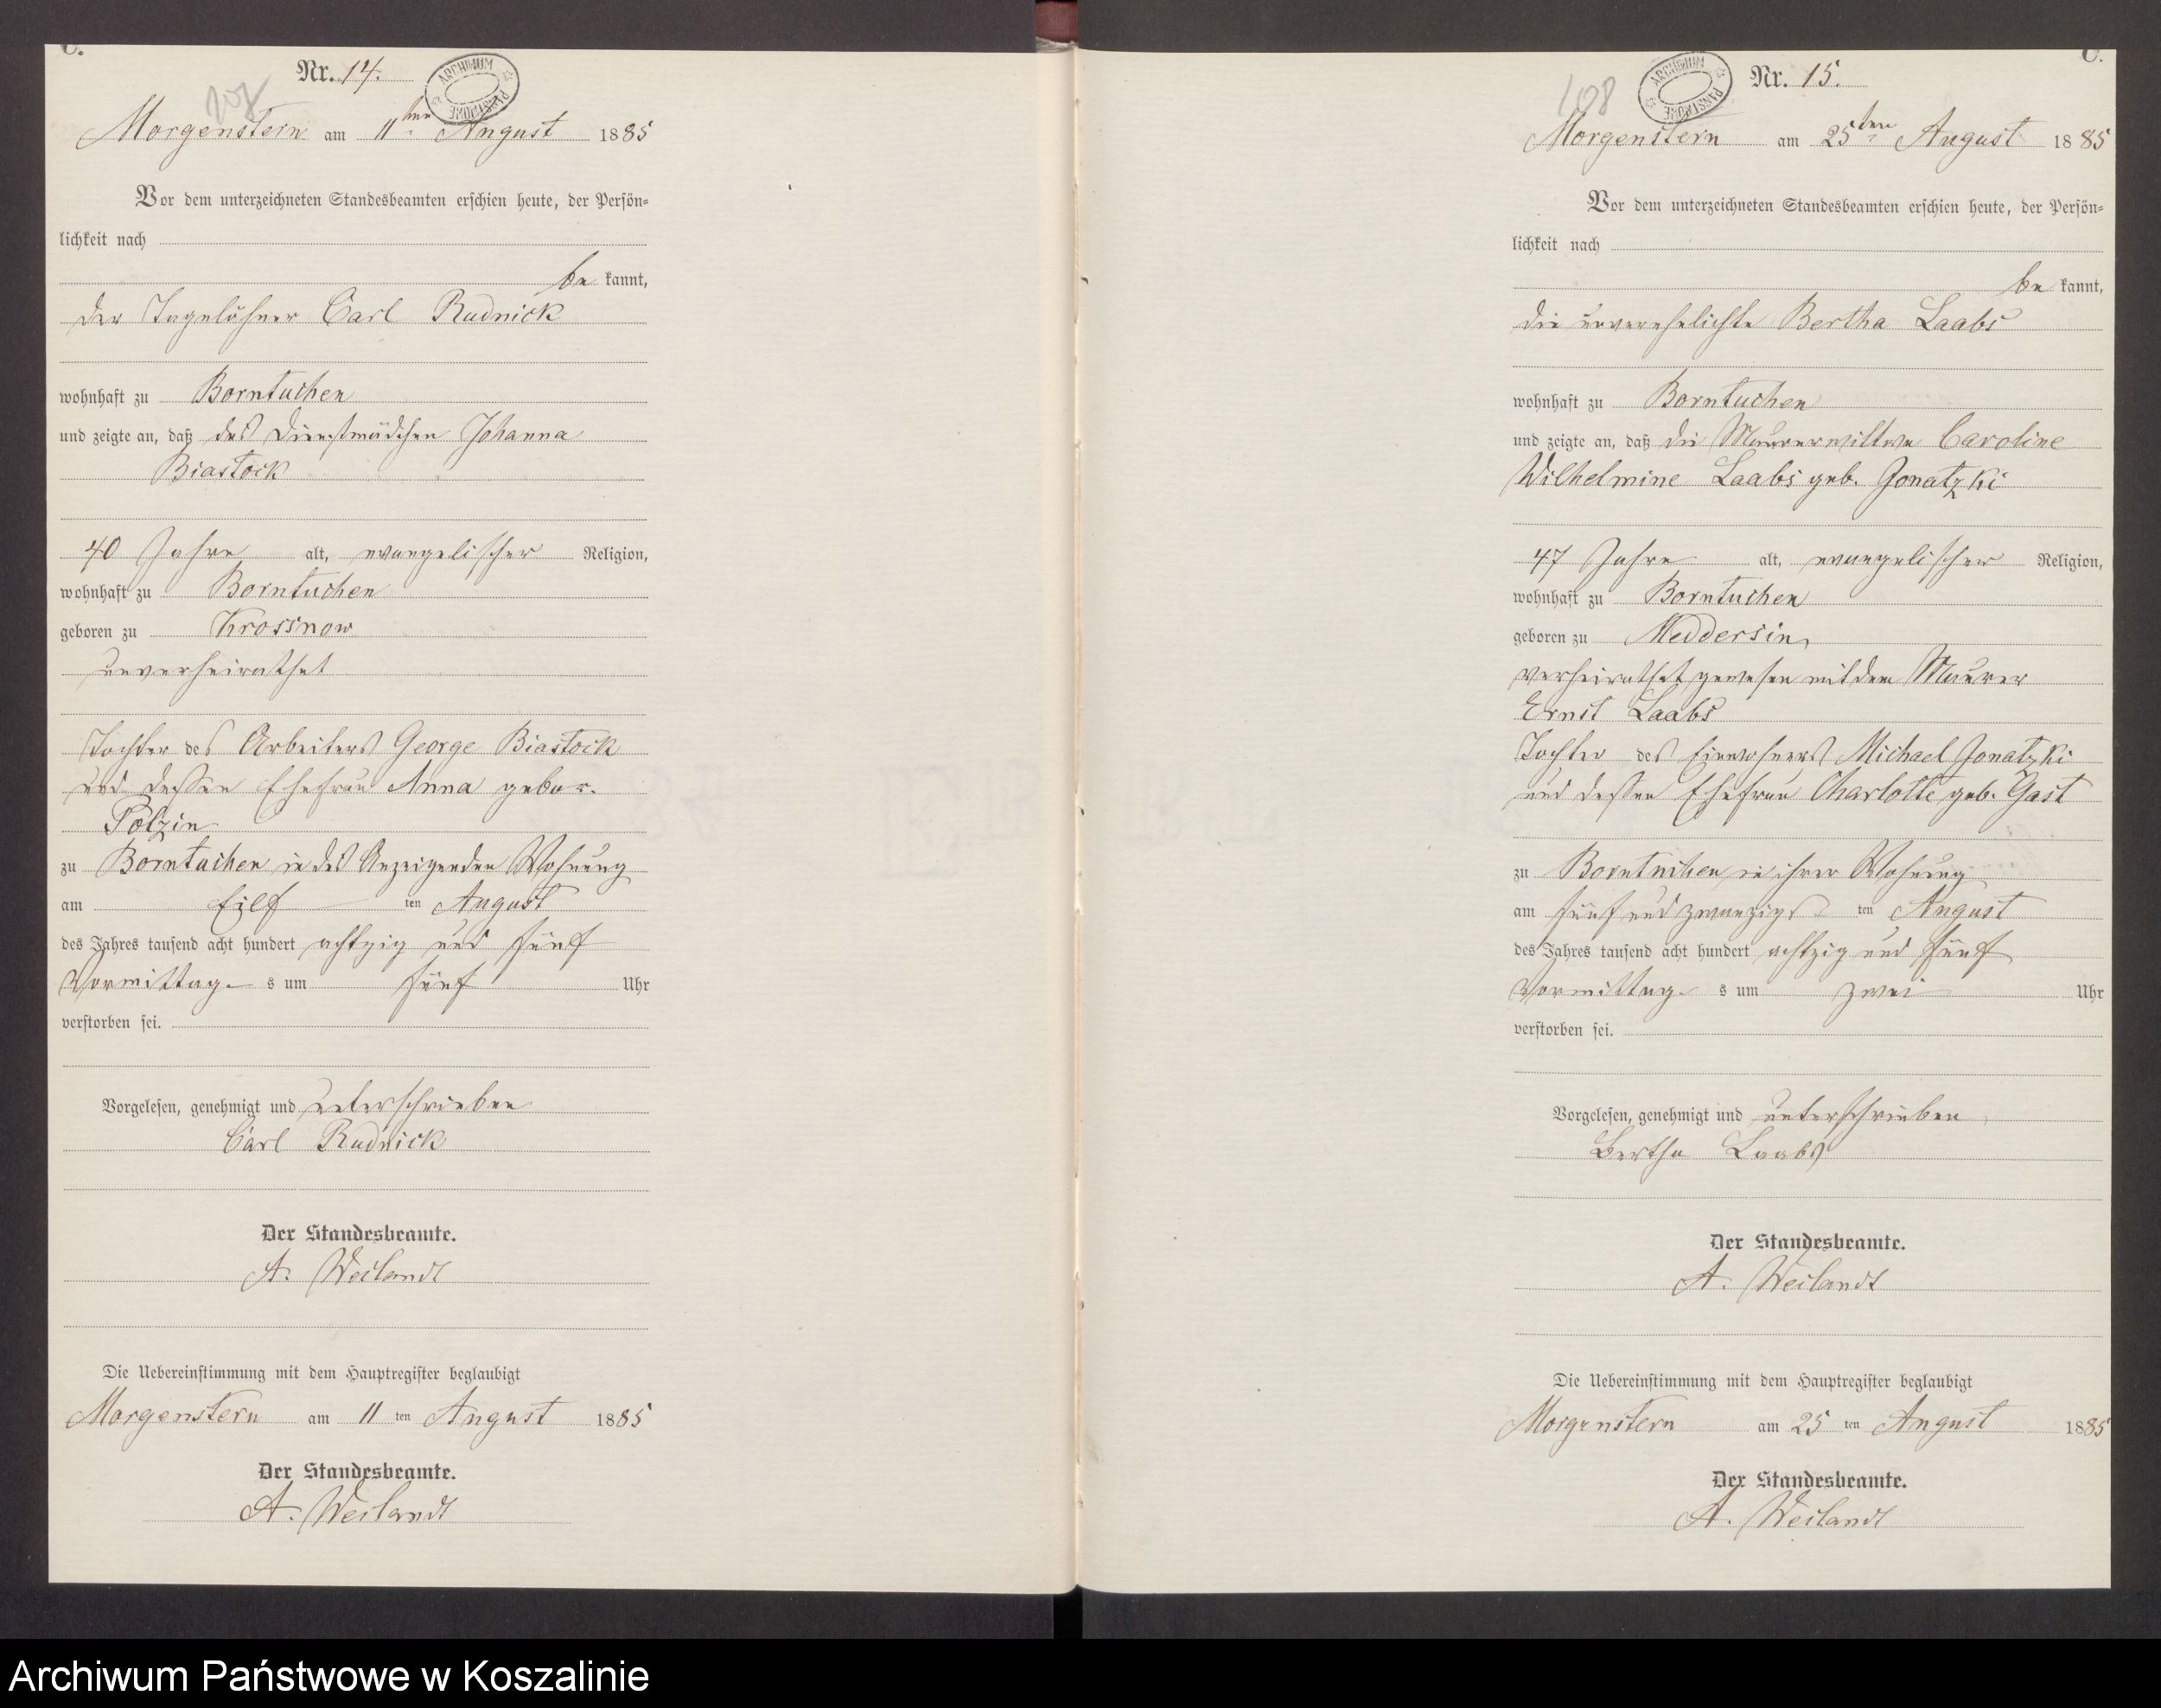 C.
Nr. 14.
ARCHIWUM PAŃSTWOWE
Morgenstern am 11ten August 1885
Vor dem unterzeichneten Standesbeamten erschien heute, der Persön=
lichkeit nach
be kannt,
der Tagelöhner Carl Rudnick
wohnhaft zu Borntuchen
und zeigte an, daß das Dienstmädchen Johanna
Biastock
40 Jahre alt, evangelischer Religion,
wohnhaft zu Borntuchen
geboren zu Krossnow
unverheirathet
Tochter des Arbeiters George Biastock
und dessen Ehefrau Anna gebor.
Polzin
zu Borntuchen in des Anzeigenden Wohnung
am Eilf ten August
des Jahres tausend acht hundert achtzig und fünf
Vormittag s um fünf Uhr
verstorben sei.
Vorgelesen, genehmigt und unterschrieben
Carl Rudnick
Der Standesbeamte.
A. Weilandt
Die Uebereinstimmung mit dem Hauptregister beglaubigt
Morgenstern am 11 ten August 1885
Der Standesbeamte.
A. Weilandt
C.
108
ARCHIWUM PAŃSTWOWE
Nr. 15.
Morgenstern am 25ten August 1885
Vor dem unterzeichneten Standesbeamten erschien heute, der Persön=
lichkeit nach
be kannt,
die unverehelichte Bertha Laabs
wohnhaft zu Borntuchen
und zeigte an, daß die Maurerwittwe Caroline
Wilhelmine Laabs geb. Jonatzki
47 Jahre alt, evangelischer Religion,
wohnhaft zu Borntuchen
geboren zu Meddersin,
verheirathet gewesen mit dem Maurer
Ernst Laabs
Tochter des Einwohners Michael Jonatzki
und dessen Ehefrau Charlotte geb. Gast
zu Borntuchen in ihrer Wohnung
am fünf und zwanzigs ten August
des Jahres tausend acht hundert achtzig und fünf
Vormittag s um zwei Uhr
verstorben sei.
Vorgelesen, genehmigt und unterschrieben
Bertha Laabs
Der Standesbeamte.
A. Weilandt
Die Uebereinstimmung mit dem Hauptregister beglaubigt
Morgenstern am 25 ten August 1885
Der Standesbeamte.
A. Weilandt
Archiwum Państwowe w Koszalinie